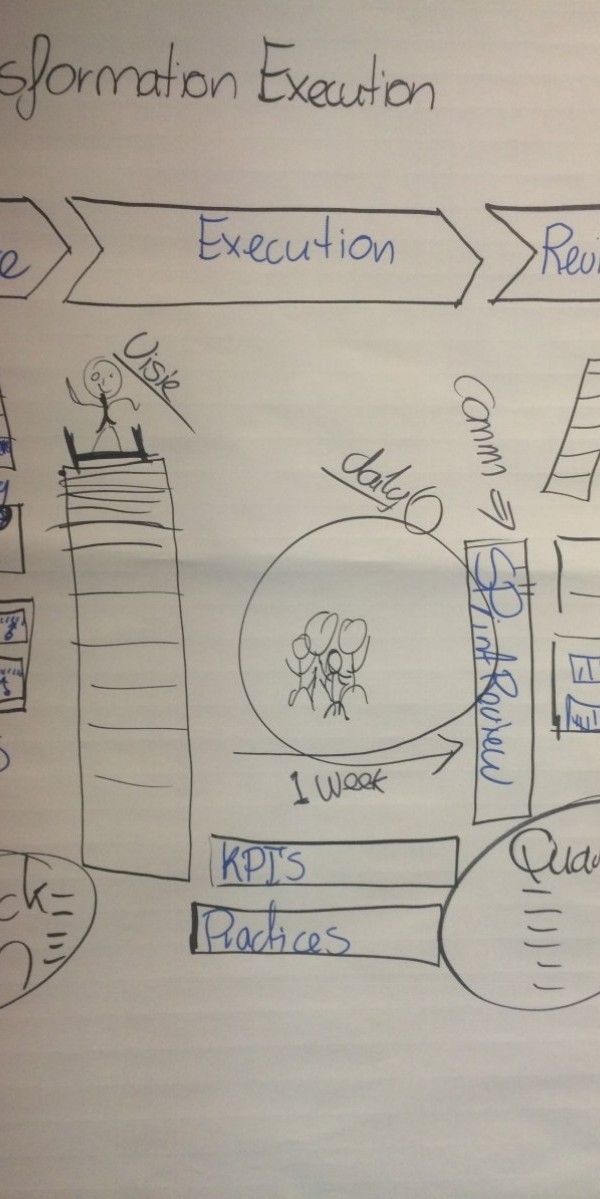 sformation Execution
e
Execution
Revi
Visie
Comm
daily
Sprint Review
1 Week
KPIS
Practices
ck
Qua